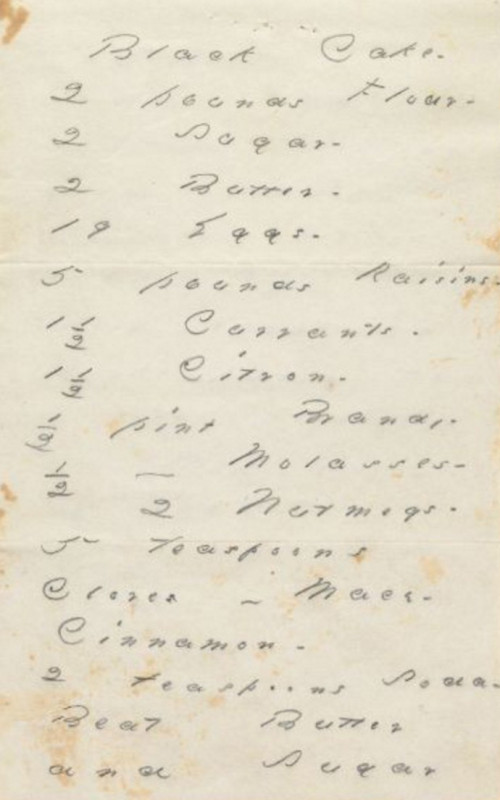 Black Cake.
2 pounds Flour.
2 Sugar.
2 Butter.
19 Eggs.
5 pounds Raisins.
1 1/2 Currants.
1 1/2 Citron.
1/2 pint Brandy.
1/2 — Molasses.
2 Nutmegs.
5 teaspoons
Cloves – Mace.
Cinnamon.
2 teaspoons Soda.
Beat Butter
and Sugar